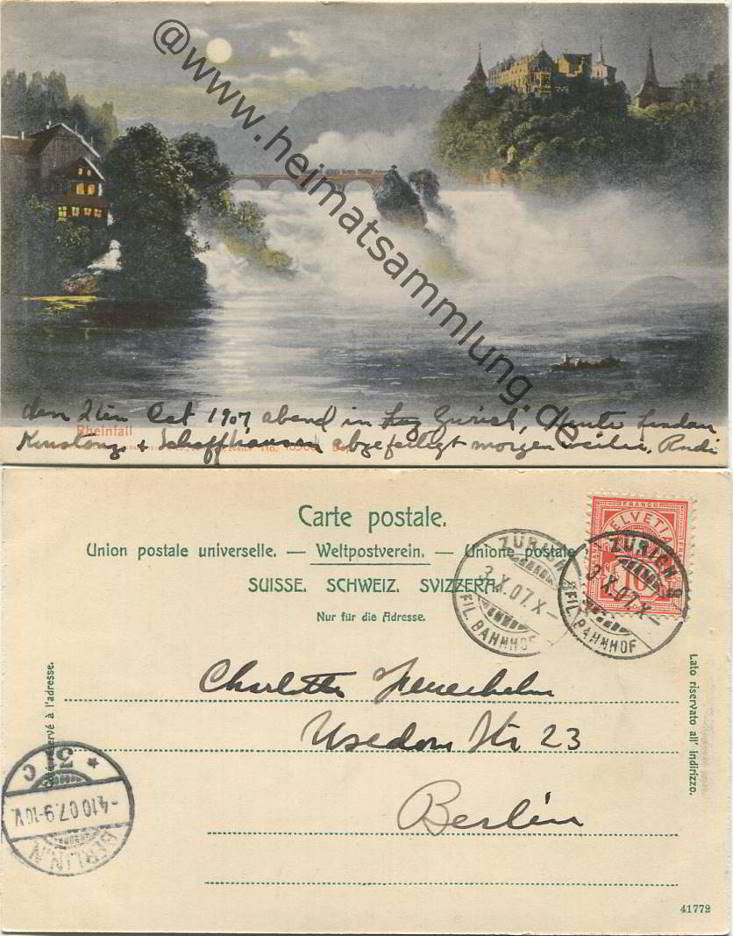 @www.heimatsammlung.de
den 2ten Oct 1907 abend in Zürich, Heute Lindau
Rheinfall
Konstanz + Schaffhausen abgefertigt morgen weiter, Rudi
Carte postale.
Union postale universelle. — Weltpostverein. — Unione postale
SUISSE. SCHWEIZ. SVIZZERA.
Nur für die Adresse.
FRANCO
HELVETIA
10
ZÜRICH
3.X.07.X–
FIL. BAHNHOF
ZÜRICH
3.X.07.X–
FIL. BAHNHOF
réservé à l'adresse.
Lato riservato all' indirizzo.
Charlotte
Usedom Str 23
Berlin
BERLIN.N
-4.10.07.9-10V.
* 31 c
41772